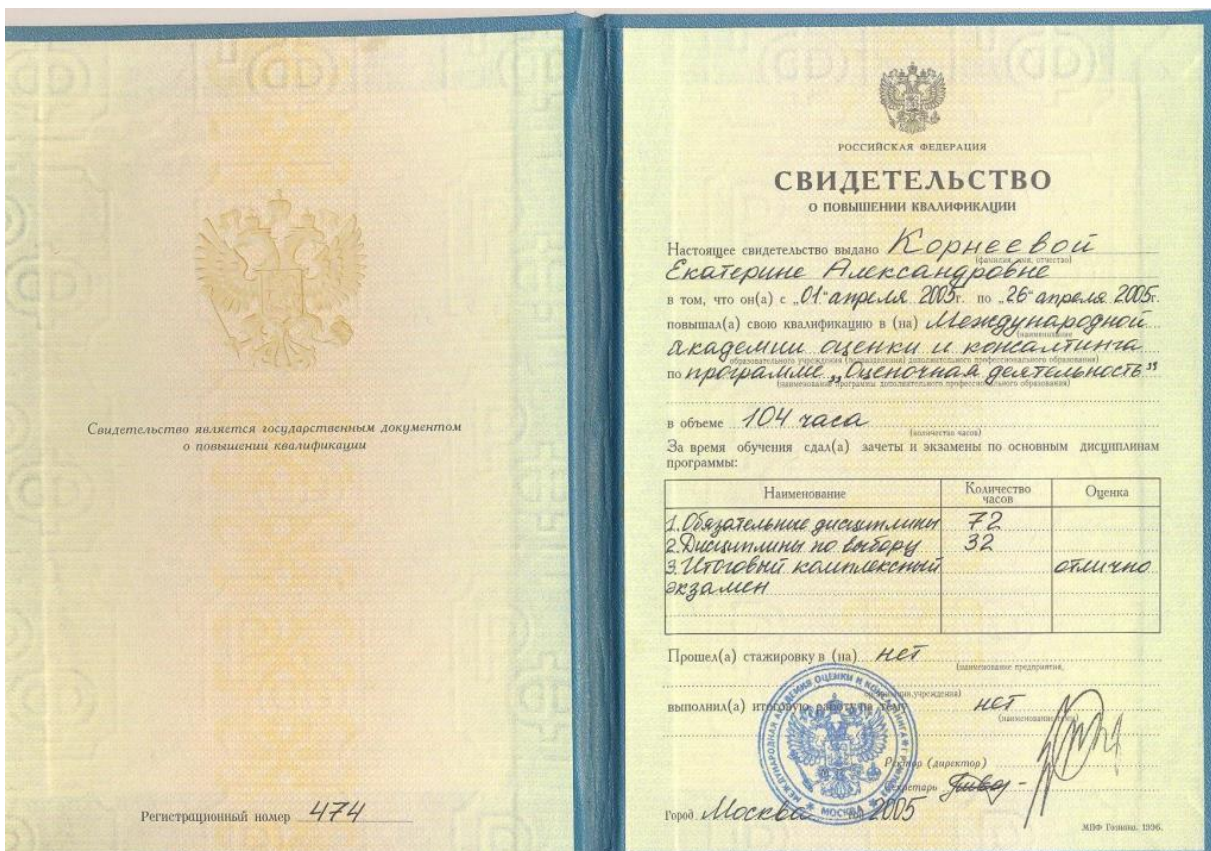 Свидетельство является государственным документом
о повышении квалификации
Регистрационный номер 474
РОССИЙСКАЯ ФЕДЕРАЦИЯ
СВИДЕТЕЛЬСТВО
О ПОВЫШЕНИИ КВАЛИФИКАЦИИ
Настоящее свидетельство выдано Корнеевой
(фамилия, имя, отчество)
Екатерине Александровне
в том, что он(а) с „01“ апреля 2005г. по „26“ апреля 2005г.
повышал(а) свою квалификацию в (на) Международной
(наименование
академии оценки и консалтинга
образовательного учреждения (подразделения) дополнительного профессионального образования)
по программе „Оценочная деятельность"
(наименование программы дополнительного профессионального образования)
в объеме 104 часа
(количество часов)
За время обучения сдал(а) зачеты и экзамены по основным дисциплинам
программы:
Наименование Количество часов Оценка
1. Обязательные дисциплины 72
2. Дисциплины по выбору 32
3. Итоговый комплексный экзамен отлично
Прошел(а) стажировку в (на) нет
(наименование предприятия,
организации, учреждения)
выполнил(а) итоговую работу на тему нет
(наименование темы)
Ректор (директор)
Секретарь
Город Москва год 2005
МЕЖДУНАРОДНАЯ АКАДЕМИЯ ОЦЕНКИ И КОНСАЛТИНГА
МОСКВА
МПФ Гознака. 1996.